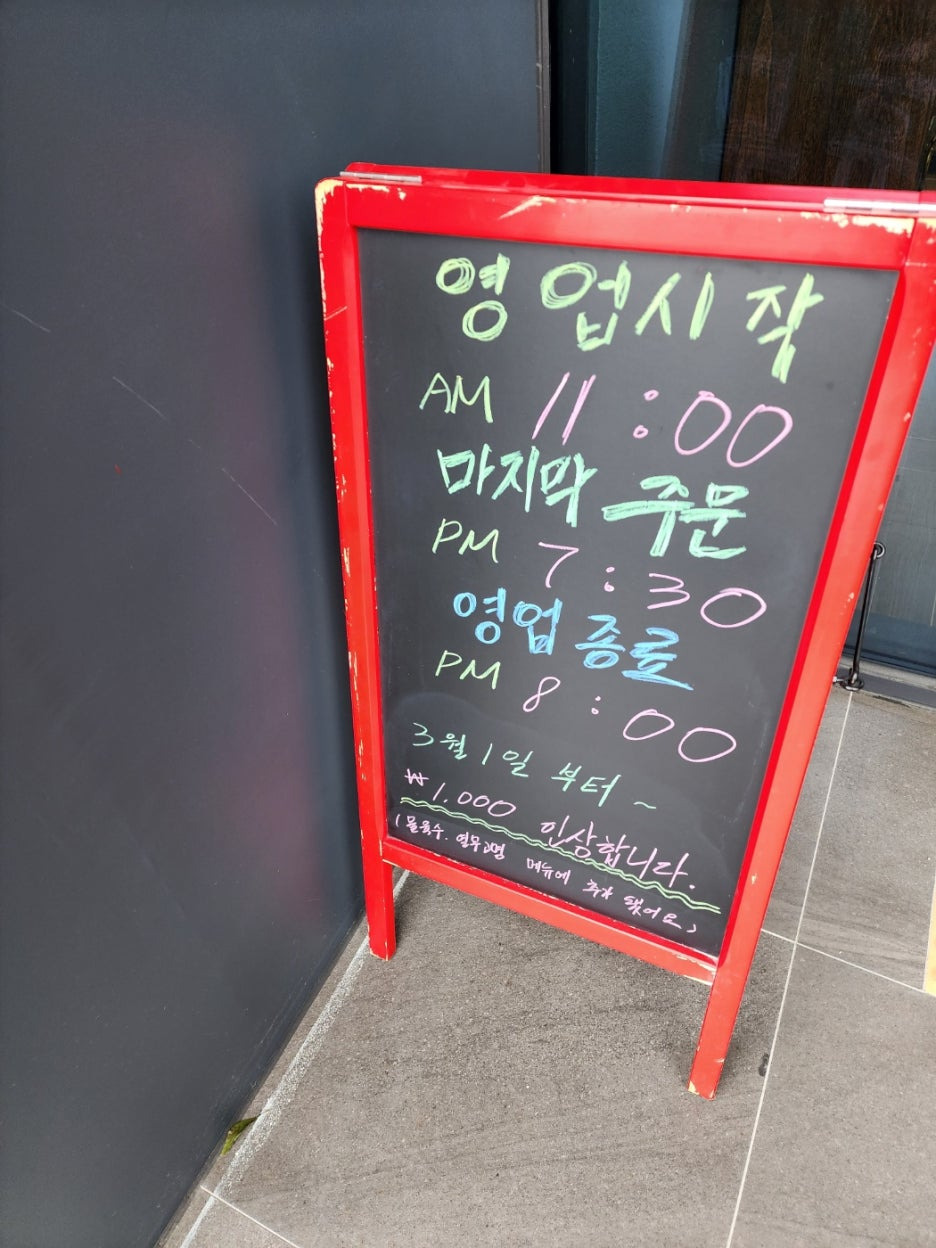 영업시작
AM 11:00
마지막 주문
PM 7:30
영업 종료
PM 8:00
3월 1일 부터 ~
₩1.000 인상합니다.
메뉴에 추가 됐어요)